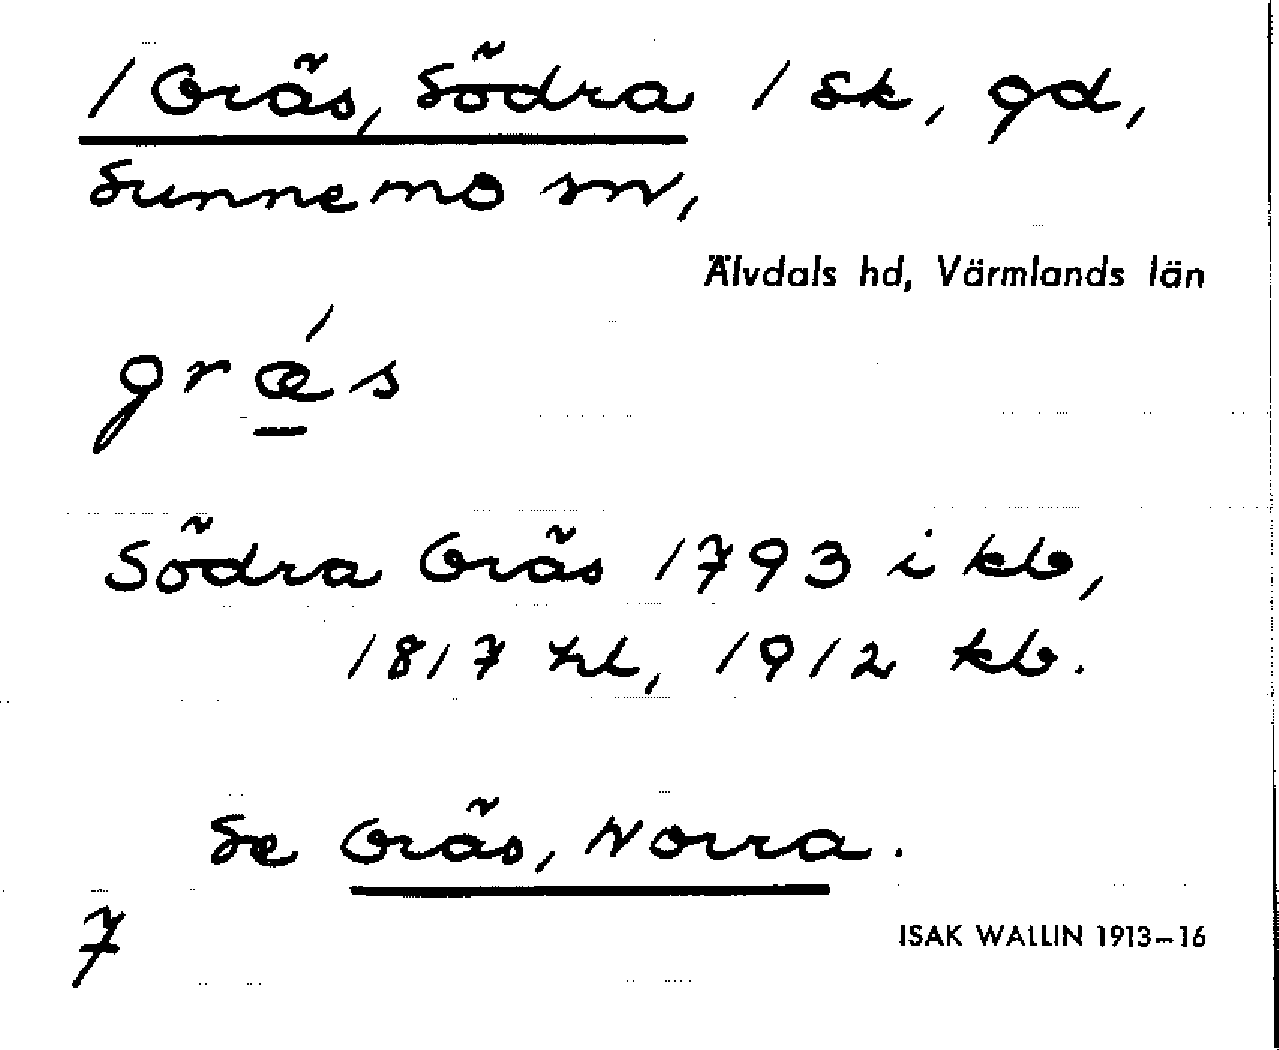 / Gräs, Södra / sk, gd,
Sunnemo sn,
Älvdals hd, Värmlands län
grǽs
Södra Gräs 1793 i kb,
1817 hl, 1912 kb.
Se Gräs, Norra.
7
ISAK WALLIN 1913–16